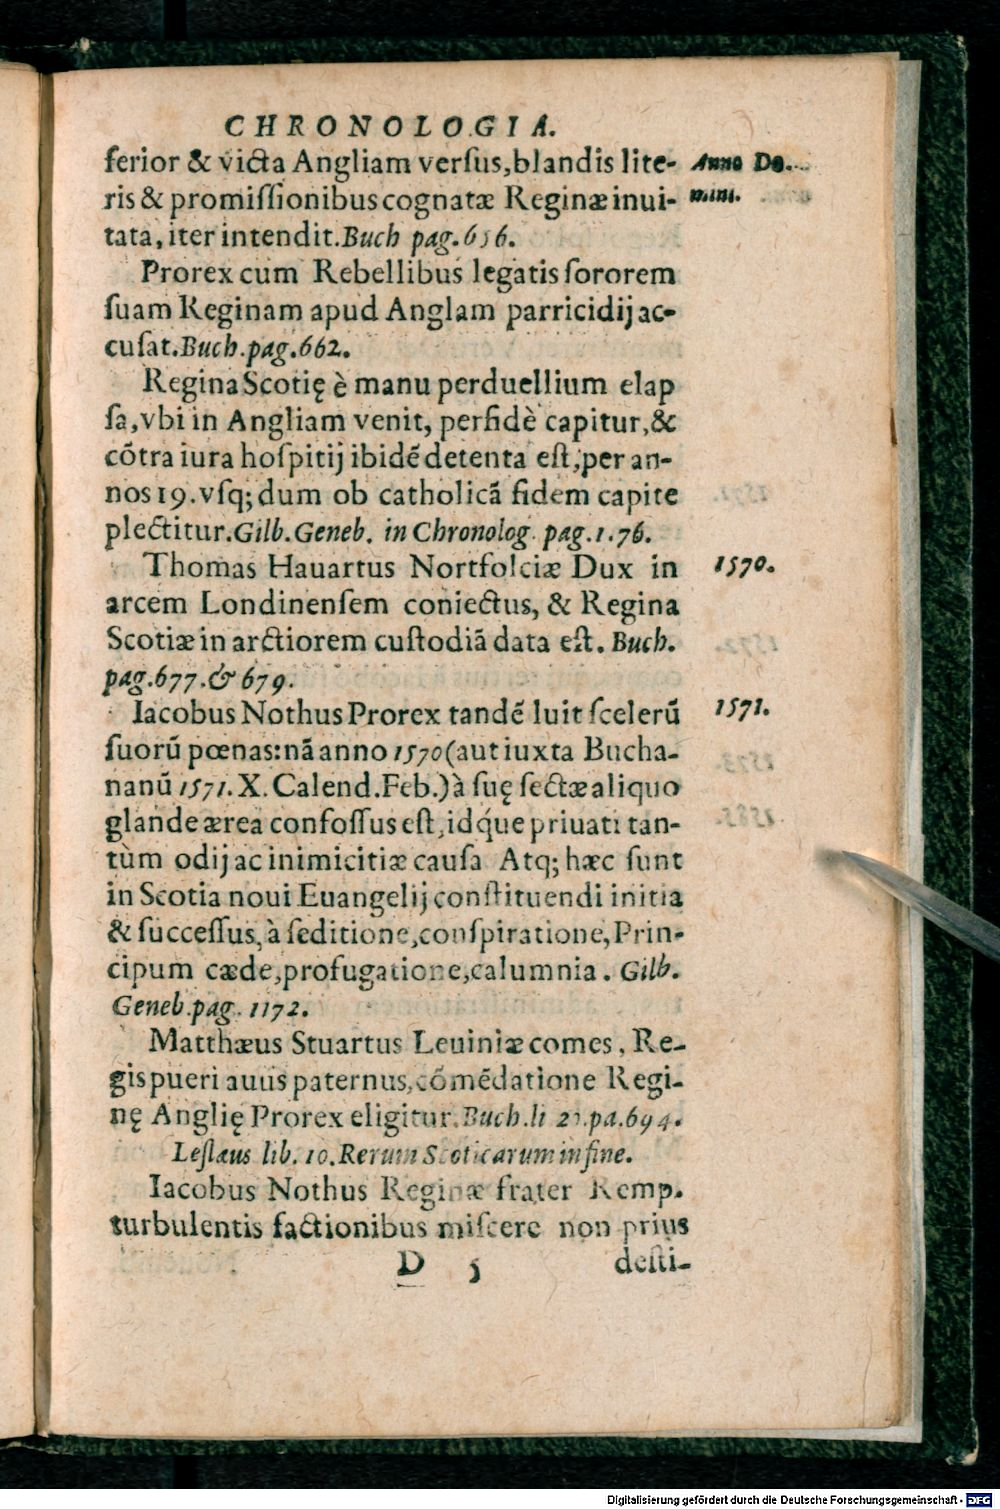 CHRONOLOGIA.
ferior & victa Angliam verſus, blandis lite- Anno Do-
ris & promiſſionibus cognatæ Reginæ inui- mini.
tata, iter intendit. Buch pag. 656.
Prorex cum Rebellibus legatis ſororem
ſuam Reginam apud Anglam parricidij ac-
cuſat. Buch. pag. 662.
Regina Scotię è manu perduellium elap
ſa, vbi in Angliam venit, perfidè capitur, &
cōtra iura hoſpitij ibidē detenta eſt, per an-
nos 19. vſq; dum ob catholicā fidem capite
plectitur. Gilb. Geneb. in Chronolog. pag. 1.76.
Thomas Hauartus Nortfolciæ Dux in 1570.
arcem Londinenſem coniectus, & Regina
Scotiæ in arctiorem cuſtodiā data eſt. Buch.
pag. 677. & 679.
Iacobus Nothus Prorex tandē luit ſcelerū 1571.
ſuorū pœnas: nā anno 1570 (aut iuxta Bucha-
nanū 1571. X. Calend. Feb.) à ſuę ſectæ aliquo
glande ærea confoſſus eſt, idq́ue priuati tan-
tùm odij ac inimicitiæ cauſa Atq; hæc ſunt
in Scotia noui Euangelij conſtituendi initia
& ſucceſſus, à ſeditione, conſpiratione, Prin-
cipum cæde, profugatione, calumnia. Gilb.
Geneb. pag. 1172.
Matthæus Stuartus Leuiniæ comes, Re-
gis pueri auus paternus, cōmēdatione Regi-
nę Anglię Prorex eligitur. Buch. li 20. pa. 694.
Leſlæus lib. 10. Rerum Scoticarum in fine.
Iacobus Nothus Reginæ frater Remp.
turbulentis factionibus miſcere non prius
D 5 deſti-
Digitalisierung gefördert durch die Deutsche Forschungsgemeinschaft - DFG